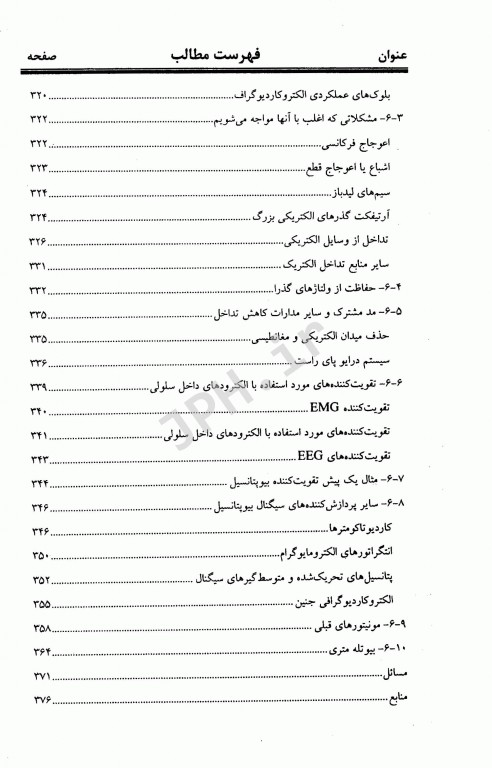 عنوان فهرست مطالب صفحه
بلوک‌های عملکردی الکتروکاردیوگراف ۳۲۰
۶-۳- مشکلاتی که اغلب با آنها مواجه می‌شویم ۳۲۲
اعوجاج فرکانسی ۳۲۲
اشباع یا اعوجاج قطع ۳۲۳
سیم‌های لیدباز ۳۲۴
آرتیفکت گذرهای الکتریکی بزرگ ۳۲۴
تداخل از وسایل الکتریکی ۳۲۶
سایر منابع تداخل الکتریک ۳۳۱
۶-۴- حفاظت از ولتاژهای گذرا ۳۳۲
۶-۵- مد مشترک و سایر مدارات کاهش تداخل ۳۳۵
حذف میدان الکتریکی و مغناطیسی ۳۳۵
سیستم درایو پای راست ۳۳۶
۶-۶- تقویت‌کننده‌های مورد استفاده با الکترودهای داخل سلولی ۳۳۹
تقویت‌کننده EMG ۳۴۰
تقویت‌کننده‌های مورد استفاده با الکترودهای داخل سلولی ۳۴۱
تقویت‌کننده‌های EEG ۳۴۳
۶-۷- مثال یک پیش تقویت‌کننده بیوپتانسیل ۳۴۴
۶-۸- سایر پردازش‌کننده‌های سیگنال بیوپتانسیل ۳۴۶
کاردیوتاکومترها ۳۴۶
انتگراتورهای الکترومایوگرام ۳۵۰
پتانسیل‌های تحریک‌شده و متوسط‌گیرهای سیگنال ۳۵۲
الکتروکاردیوگرافی جنین ۳۵۵
۶-۹- مونیتورهای قبلی ۳۵۸
۶-۱۰- بیوتله متری ۳۶۴
مسائل ۳۷۱
منابع ۳۷۶
JPH.ir